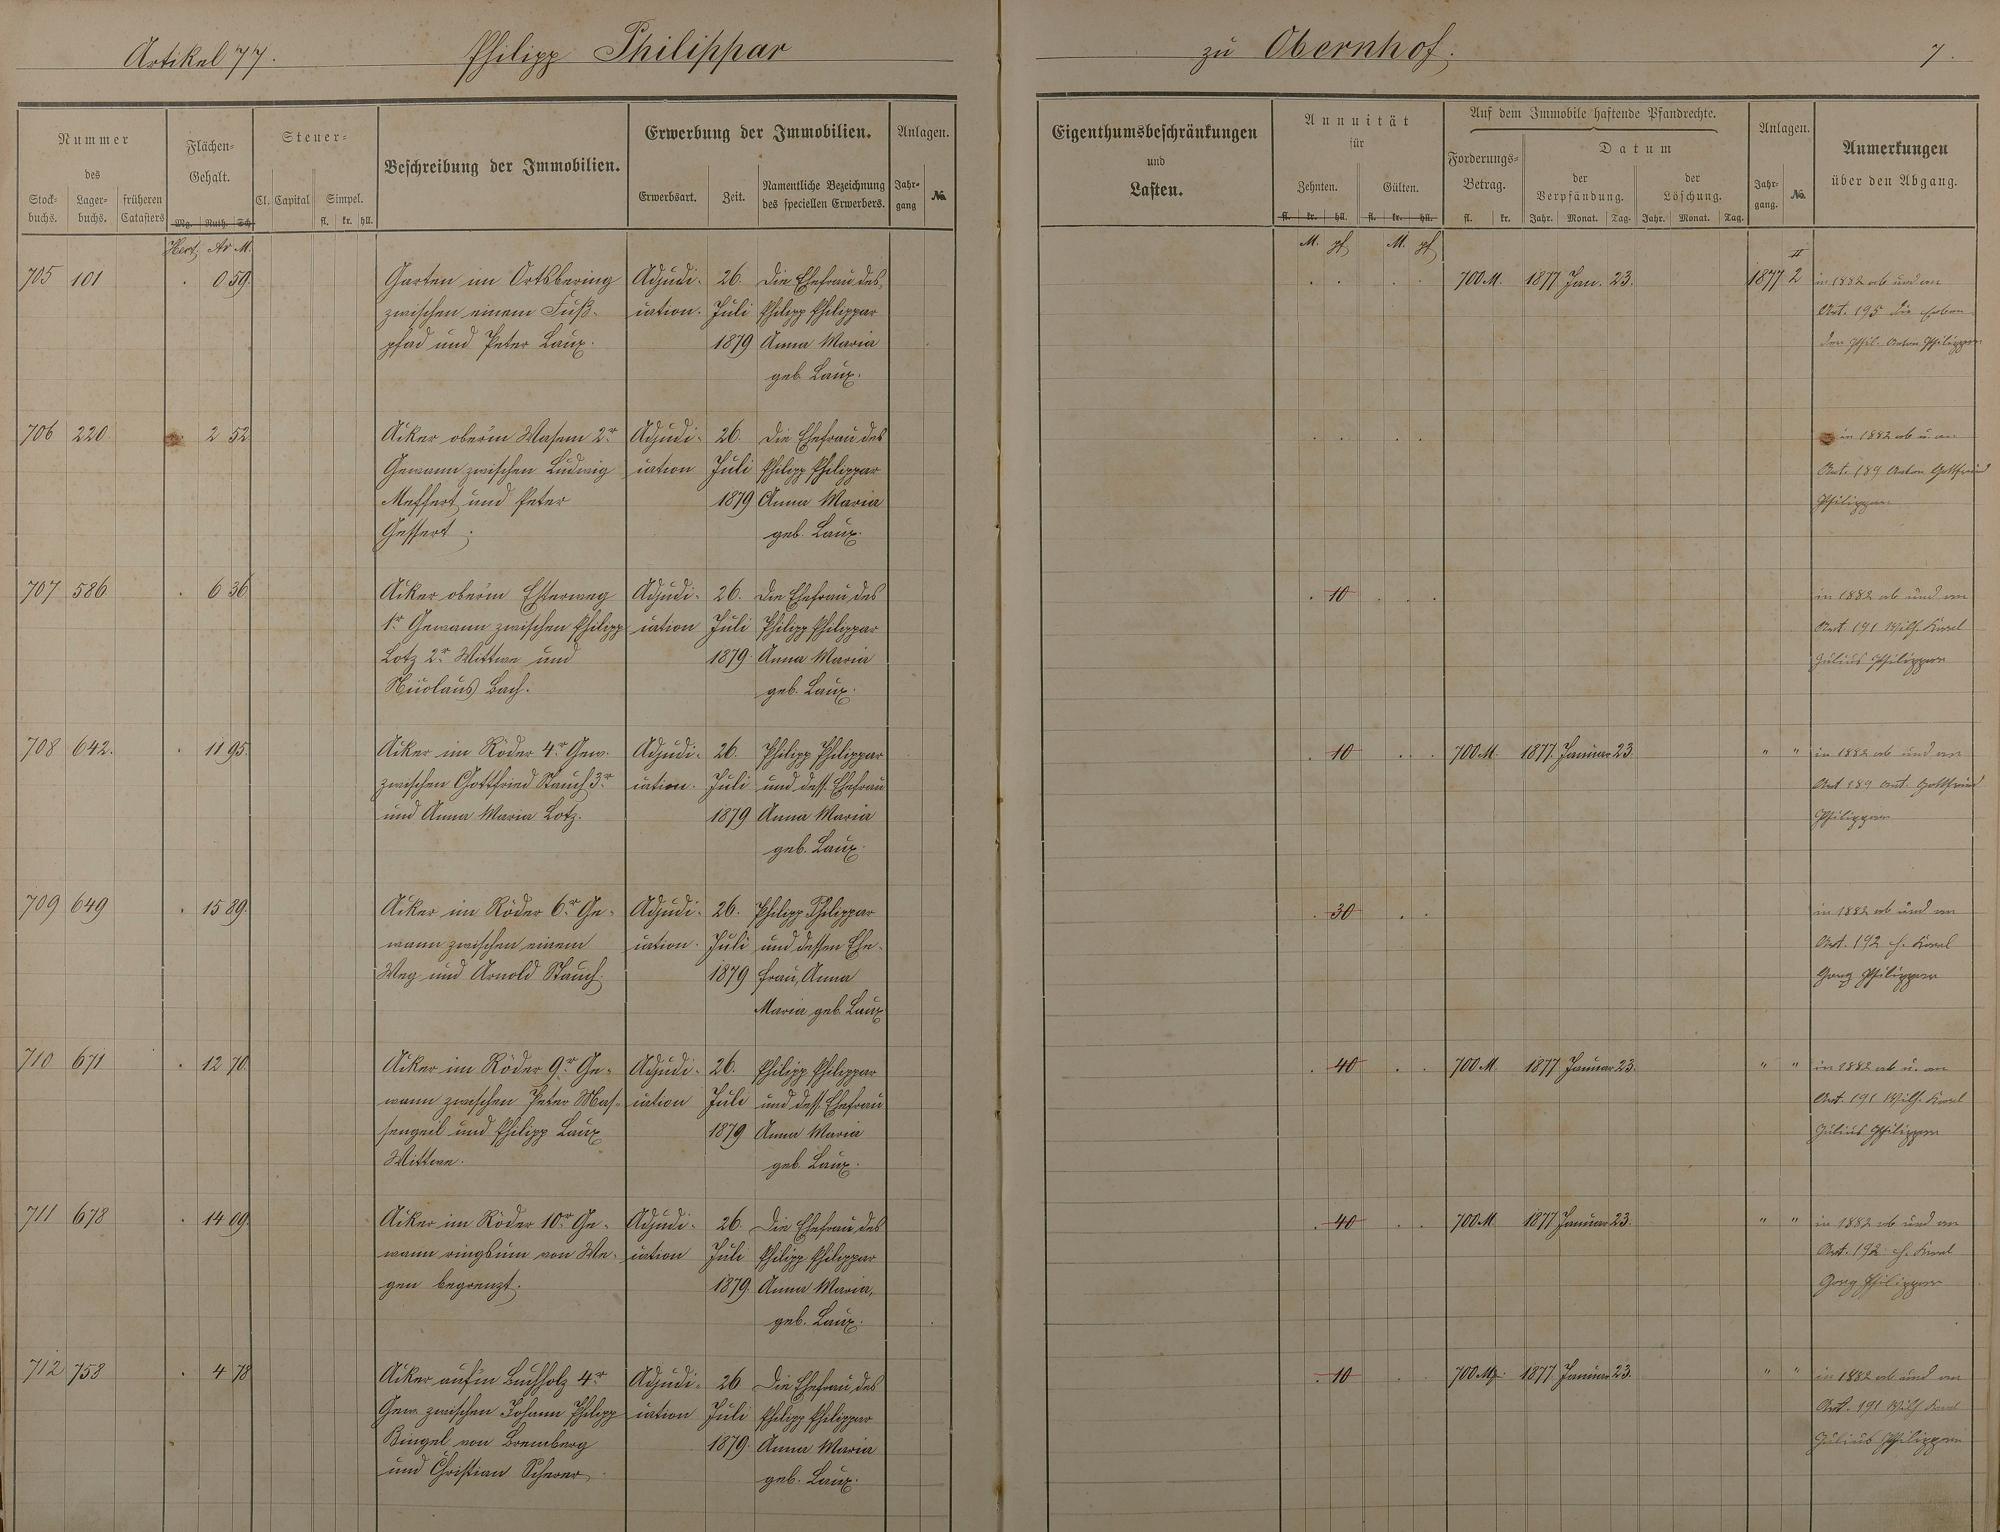 Artikel 77. Philipp Philippar zu Obernhof. 7.
Nummer
des
Stock-
buchs.
Lager-
buchs.
früheren
Catasters
Flächen-
Gehalt.
Mg. Ruth. Sch.
Steuer-
Cl. Capital Simpel.
fl. kr. hll.
Beschreibung der Immobilien.
Erwerbung der Immobilien.
Erwerbsart. Zeit.
Namentliche Bezeichnung
des speciellen Erwerbers.
Anlagen.
Jahr-
gang
No.
Eigenthumsbeschränkungen
und
Lasten.
Annuität
für
Zehnten. Gülten.
fl. kr. hll. fl. kr. hll.
Auf dem Immobile haftende Pfandrechte.
Forderungs-
Betrag.
fl. kr.
Datum
der
Verpfändung.
Jahr. Monat. Tag.
der
Löschung.
Jahr. Monat. Tag.
Anlagen.
Jahr-
gang.
No.
Anmerkungen
über den Abgang.
Hect. Ar M.
M. pf M. pf
II
705 101 0 59 Garten im Ortsbering Adjudi- 26. Die Ehefrau des 700 M. 1877 Jan. 23. 1877 2 in 1882 ab und an
zwischen einem Fuß- cation. Juli Philipp Philippar Art. 195 die Erben
pfad und Peter Laux. 1879 Anna Maria der Phil. Anton Philippar
geb. Laux.
706 220 2 52 Acker oberm Wasem 2r Adjudi- 26. Die Ehefrau des in 1882 ab u. an
Gewann zwischen Ludwig cation Juli Philipp Philippar Art. 189 Anton Gottfried
Meffert und Peter 1879 Anna Maria Philippar
Gessert. geb. Laux.
707 586 6 36 Acker oberm Esterweg Adjudi- 26. Die Ehefrau des 10 in 1882 ab und an
1r Gewann zwischen Philipp cation Juli Philipp Philippar Art. 191 Wilh. Karl
Lotz 2r Wittwe und 1879. Anna Maria Julius Philippar
Nicolaus Bach. geb. Laux.
708 642. 11 95 Acker im Röder 4r Gew. Adjudi- 26. Philipp Philippar 10 700 M. 1877 Januar 23. " " in 1882 ab und an
zwischen Gottfried Stauch 3r cation. Juli und dess. Ehefrau Art 189 Ant. Gottfried
und Anna Maria Lotz. 1879 Anna Maria Philippar
geb. Laux.
709 649 15 89 Acker im Röder 6r Ge- Adjudi- 26. Philipp Philippar 30 in 1882 ab und an
wann zwischen einem cation. Juli und dessen Ehe- Art. 192 H. Karl
Weg und Arnold Stauch. 1879 frau, Anna Georg Philippar
Maria geb. Laux
710 671 12 70 Acker im Röder 9r Ge- Adjudi- 26. Philipp Philippar 40 700 M. 1877 Januar 23. " " in 1882 ab u. an
wann zwischen Peter Mas- cation Juli und dess. Ehefrau Art. 191 Wilh. Karl
sengeil und Philipp Laux 1879 Anna Maria Julius Philippar
Wittwe. geb. Laux.
711 678 14 09 Acker im Röder 10r Ge- Adjudi- 26. Die Ehefrau des 40 700 M 1877 Januar 23. " " in 1882 ab und an
wann ringsum von We- cation Juli Philipp Philippar Art. 192 H. Karl
gen begrenzt. 1879. Anna Maria, Georg Philippar
geb. Laux.
712 758 4 78 Acker aufm Buchholz 4r Adjudi- 26 Die Ehefrau des 10 700 M. 1877 Januar 23. " " in 1882 ab und an
Gew. zwischen Johann Philipp cation Juli Philipp Philippar Art. 191 Wilh Karl
Bingel von Bremberg 1879. Anna Maria Julius Philippar
und Christian Scherer. geb. Laux.